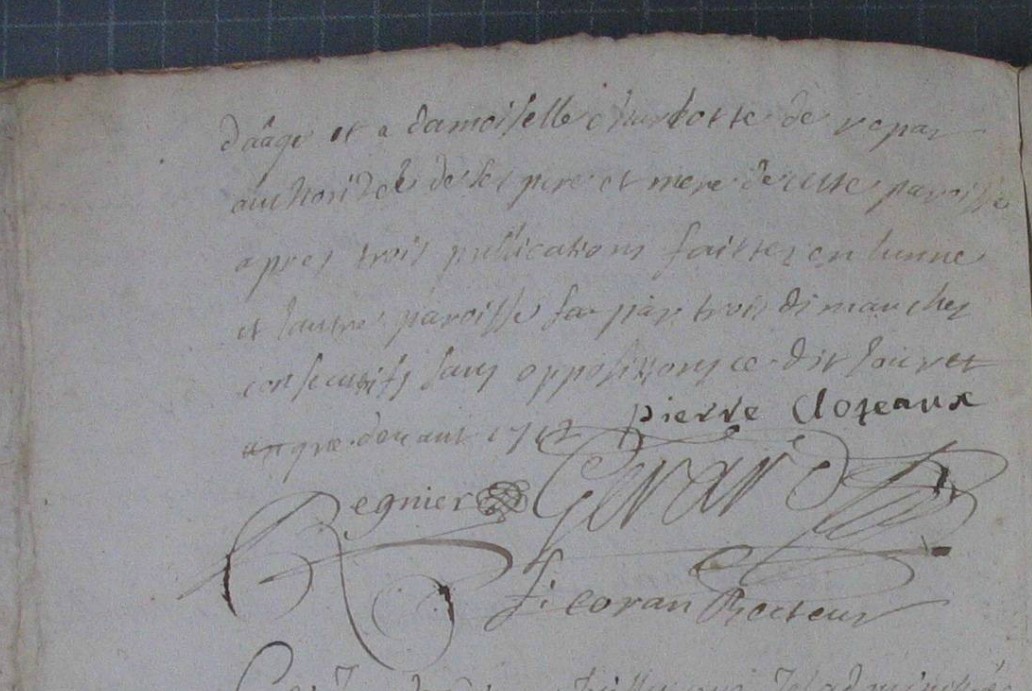 d'aâge et a damoiselle charlotte de
authorizée de ses pere et mere de cette paroisse
apres trois publications faittes en lunne
et lautre paroisse par trois dimanches
consecutifs sans oppositions ce dit jour et
an que devant
pierre Clozeaux
Regnier Gerard
coran Recteur